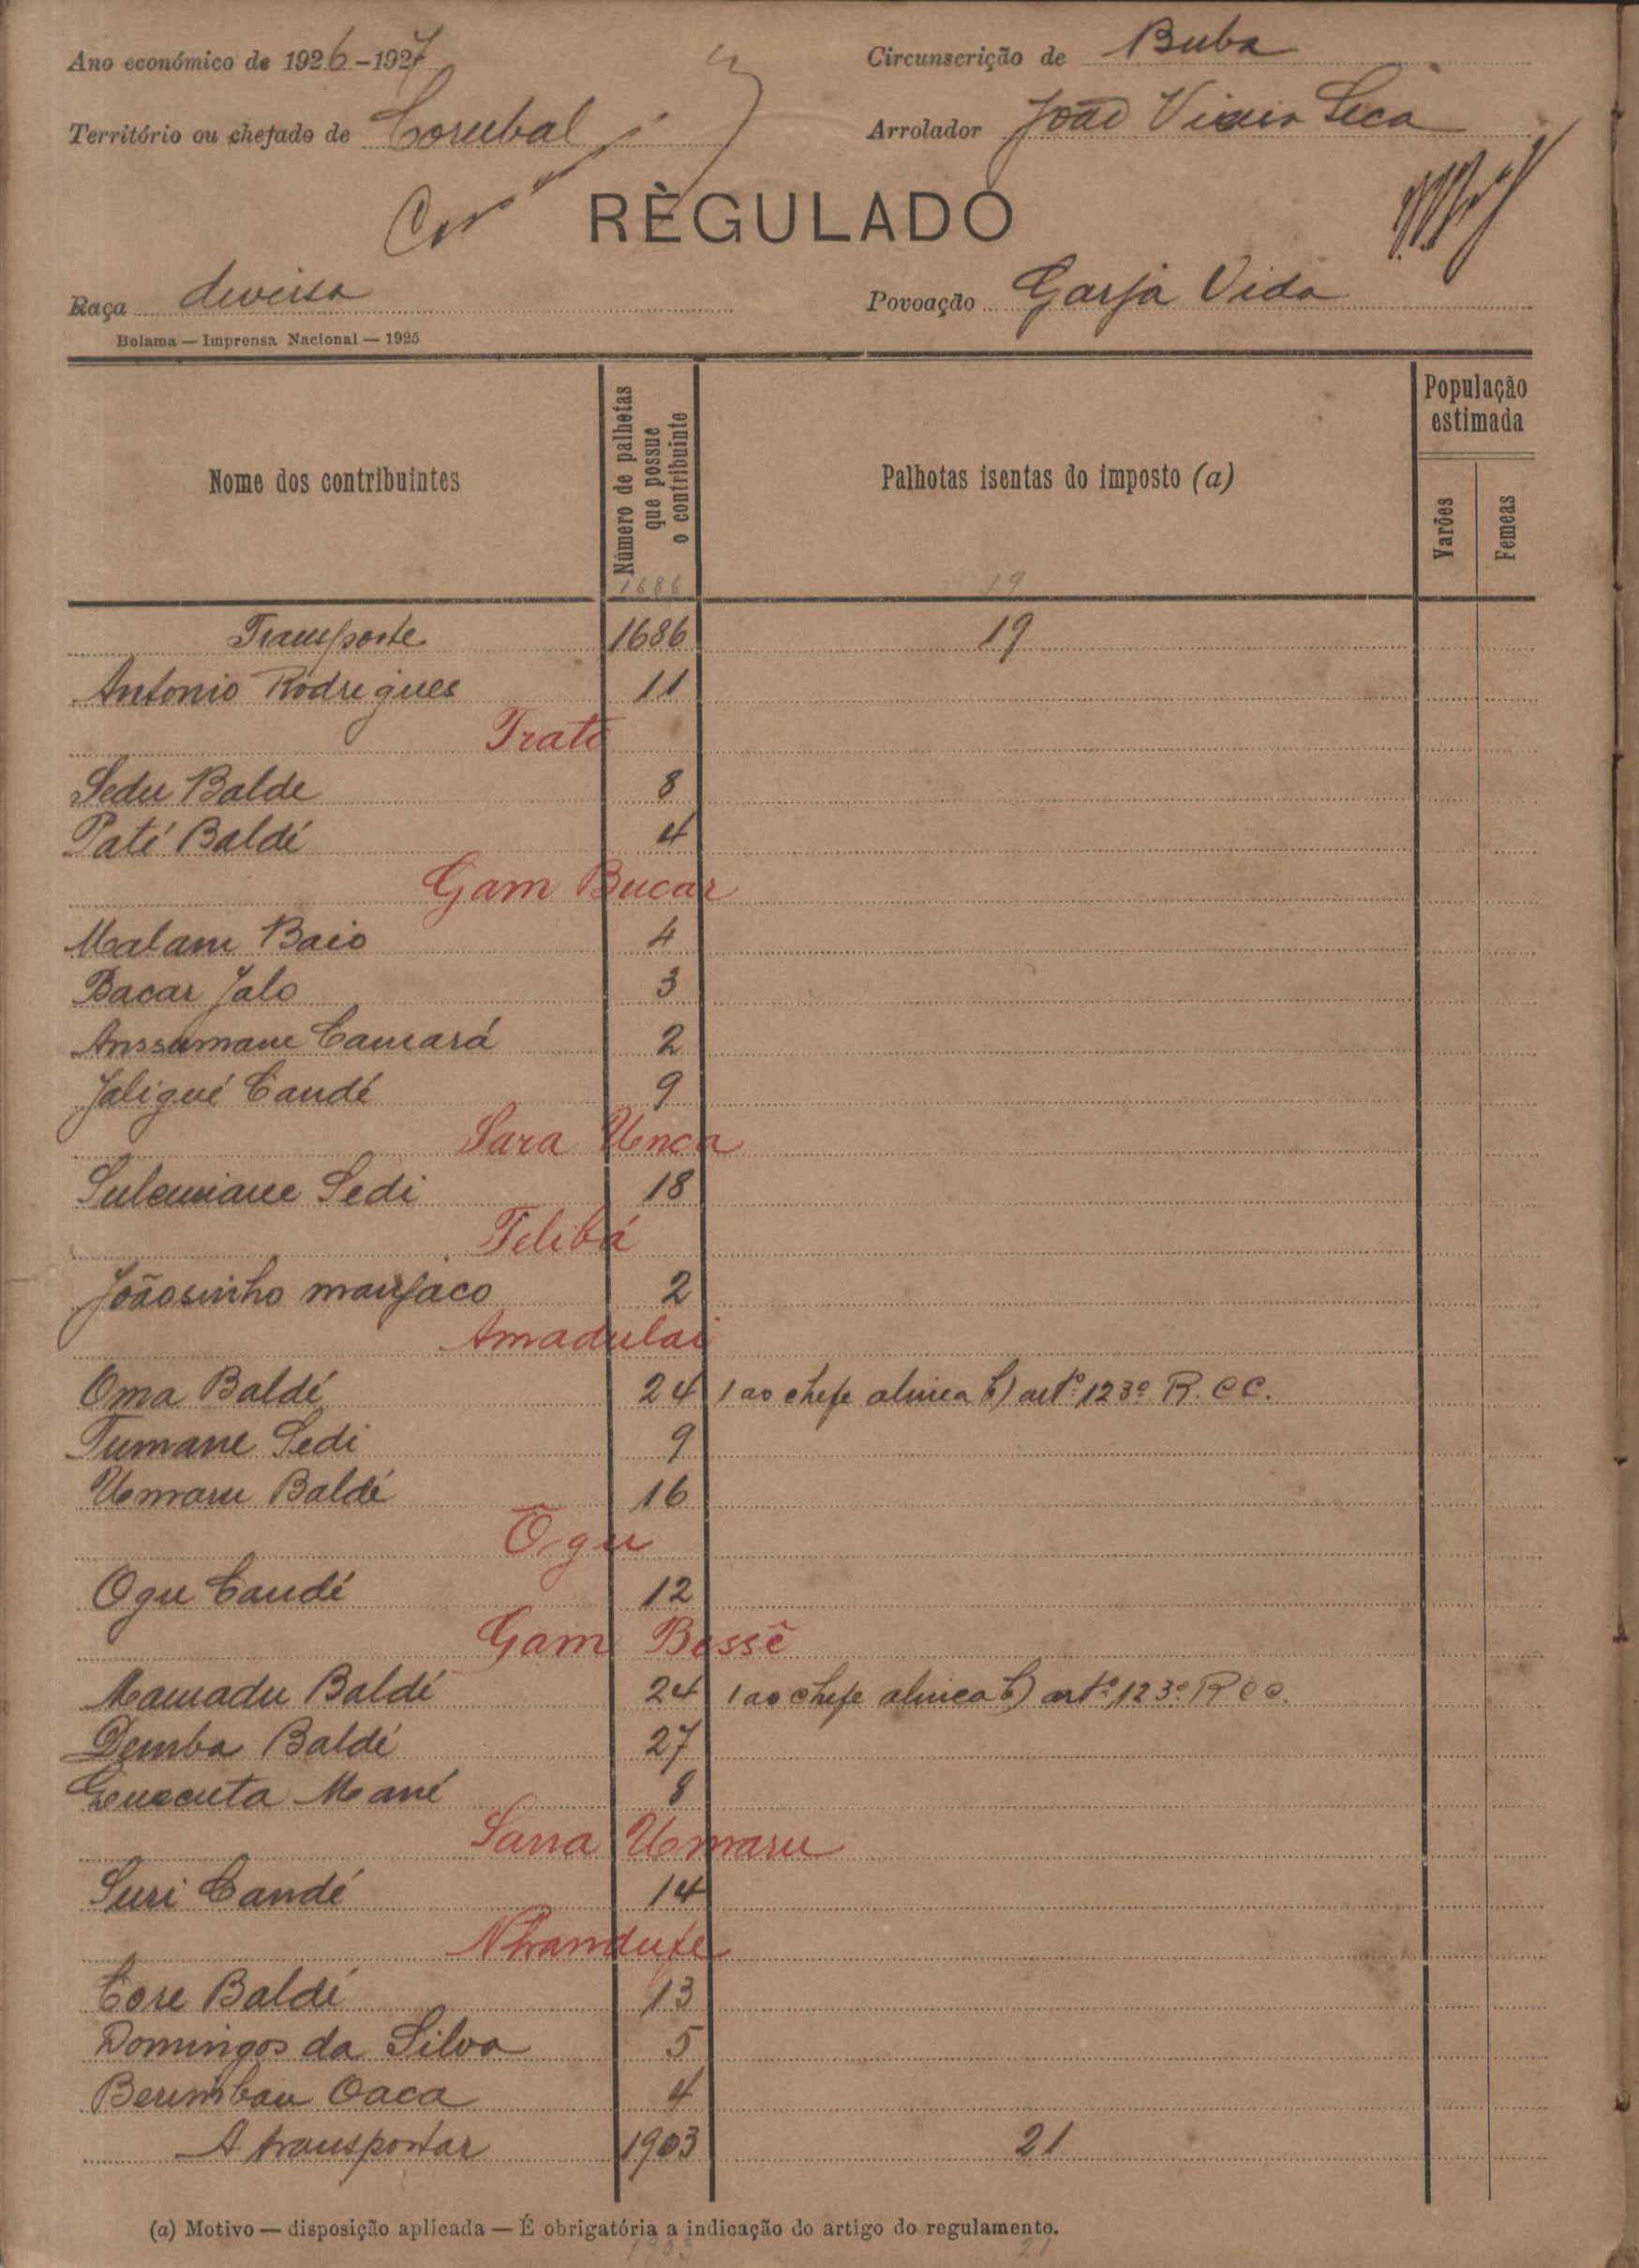 Ano económico de 1926-1927
Circunscrição de Buba
Território ou chefado de Corubal
Arrolador João Vieira Seca
RÈGULADO
Raça diversa
Povoação Garja Vida
Bolama — Imprensa Nacional — 1925
Nome dos contribuintes
Número de palhetas que possue o contribuinte
Palhotas isentas do imposto (a)
População estimada
Varões
Femeas
1686 19
Transporte 1686 19
Antonio Rodrigues 11
Trate
Sedu Balde 8
Paté Baldé 4
Gam Bucar
Malam Baio 4
Bacar Jalo 3
Anssumane Camará 2
Jaligué Candé 9
Sara Unca
Sulemane Sedi 18
Telibá
Joãosinho manjaco 2
Amadulai
Oma Baldé 24 1 ao chefe alinea b) artº 123º R.CC.
Tumane Sedi 9
Umaru Baldé 16
Ôgu
Ogu Candé 12
Gam Bessê
Mamadu Baldé 24 1 ao chefe alinea b) artº 123º RCC.
Demba Baldé 27
Quecuta Mané 8
Sarra Umaru
Suri Candé 14
Nhandufe
Core Baldé 13
Domingos da Silva 5
Berimbau Oaca 4
A transportar 1903 21
(a) Motivo — disposição aplicada — É obrigatória a indicação do artigo do regulamento.
1903 21